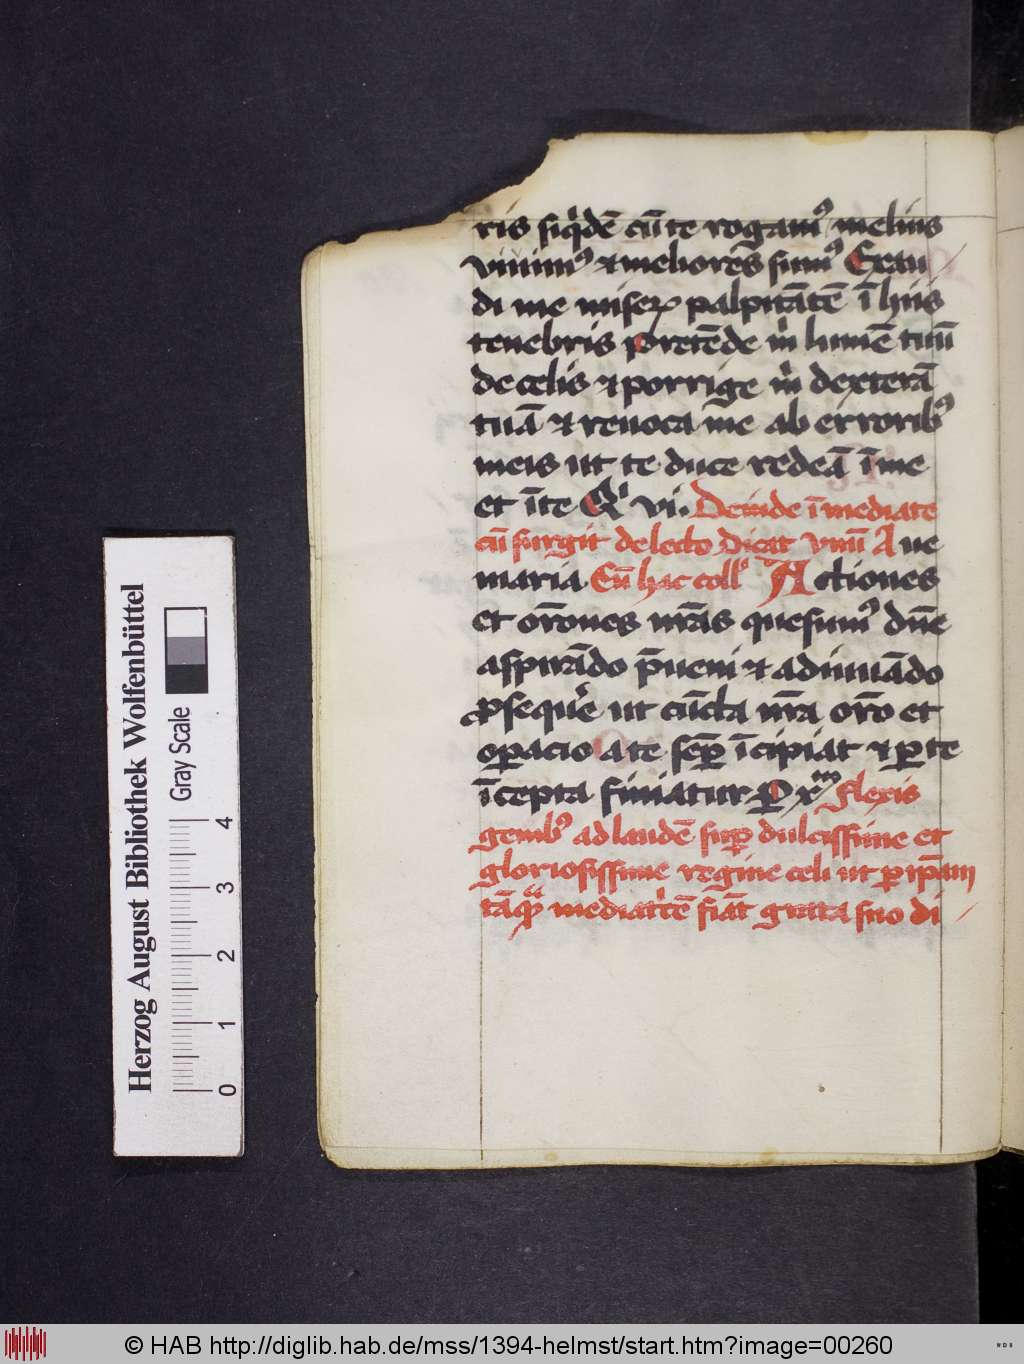 ris siq̇dē cū te rogamꝰ melius
viuimꝰ ⁊ meliores sumꝰ Exau
di me miseꝝ palpitātē ī hiis
tenebris Pretēde m̍ lumē tuū
de celis ⁊ porrige m̍ dexterā
tuā ⁊ reuoca me ab erroribꝰ
meis ut te duce redeā ī me
et ī te Qͥ vi. Deinde īmediate
cū surgit de lecto dicat vnū Aue
maria Cū hac coll̓ Actiones
et or̄ones nr̄as quesumꝰ dn̄e
aspirādo p̄ueni ⁊ adiuuādo
ꝓsequ̍e ut cūcta nr̄a or̄o et
oꝑacio a te semꝑ īcipiat ⁊ ꝑ te
īcepta finiatur ꝑ xᵐ flexis
genibꝰ ad laudē suꝑ dulcissime et
gloriosissime regine celi ut ꝑ ip̄am
tāqᵃ̄ mediatͥcē fiāt grata suo di
Herzog August Bibliothek Wolfenbüttel
Gray Scale
0 1 2 3 4
© HAB http://diglib.hab.de/mss/1394-helmst/start.htm?image=00260